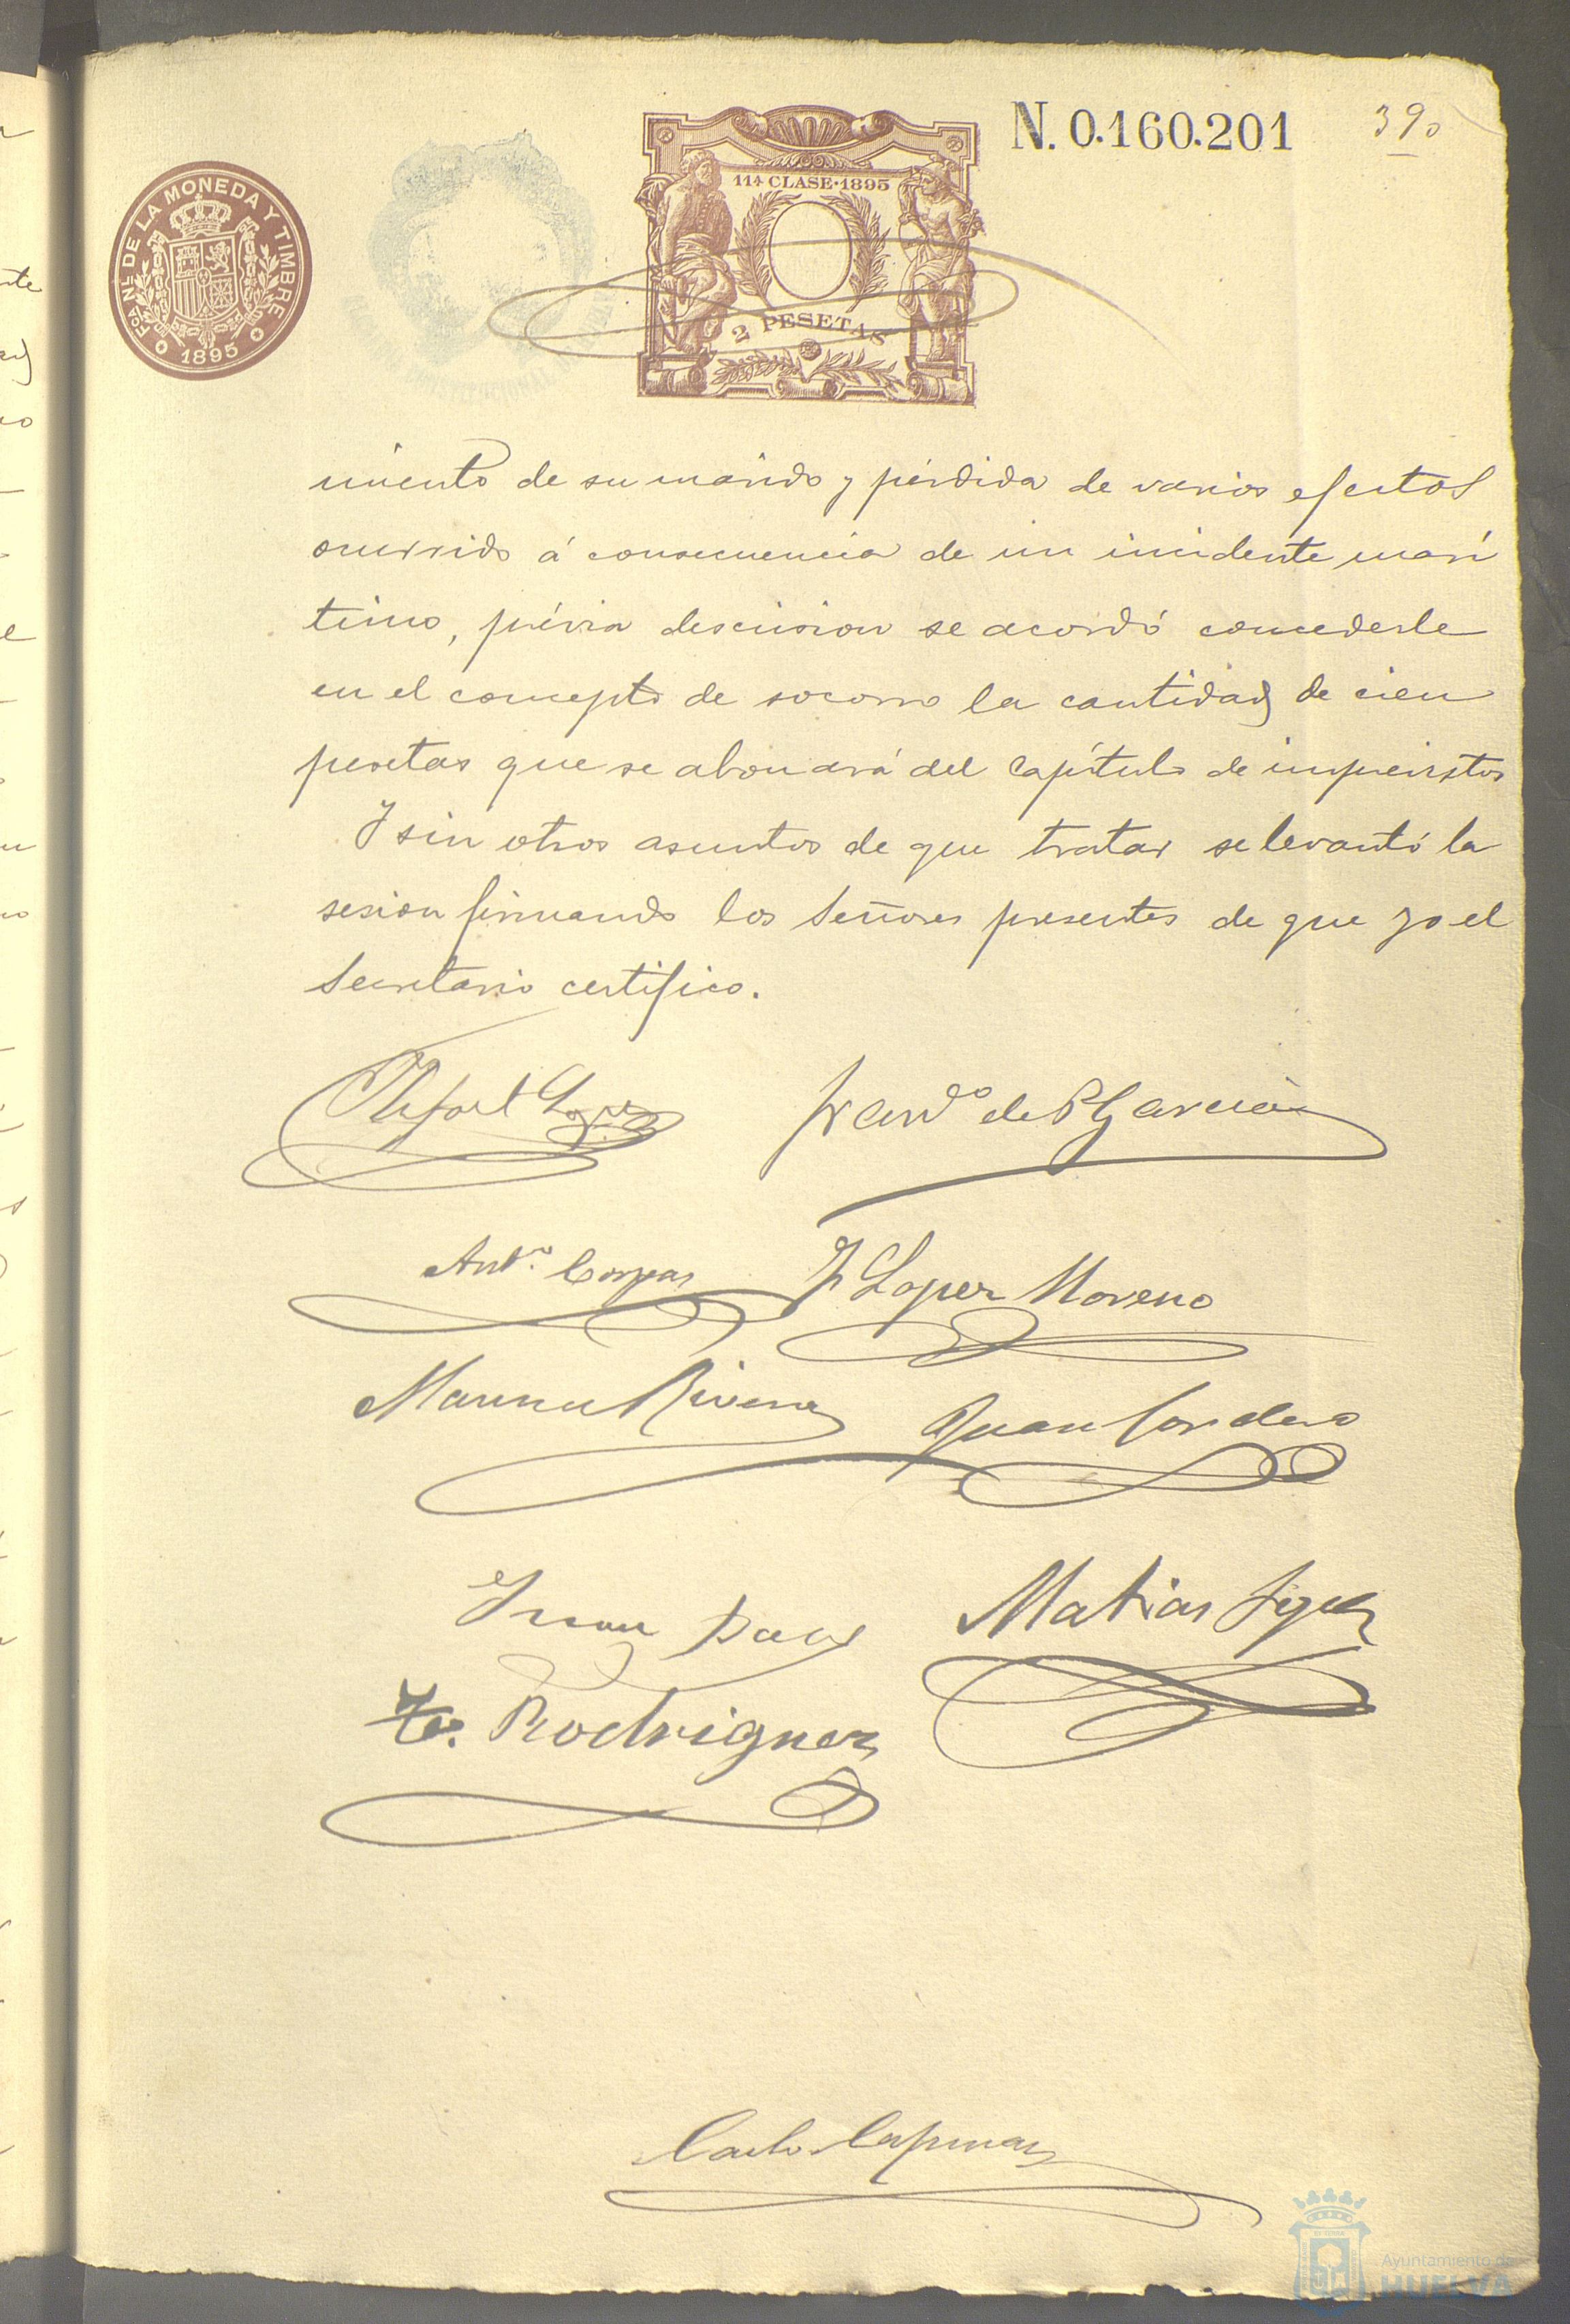 N. 0.160.201
39
Fca. NL. DE LA MONEDA Y TIMBRE
1895
11ª CLASE·1895
2 PESETAS
CONSTITUCIONAL
miento de su marido y pérdida de varios efectos
ocurrido á consecuencia de un incidente marí
timo, prévia descusion se acordó concederle
en el concepto de socorro la cantidad de cien
pesetas que se abonará del Capítulo de imprevistos
Y sin otros asuntos de que tratar se levantó la
sesion firmando los Señores presentes de que yo el
Secretario certifico.
Franco de P Garcia
Anto. Corpas
F Lopez Moreno
Manuel Rivera
Juan Cordero
Juan
Matias
Rodriguez
Ayuntamiento de
HUELVA